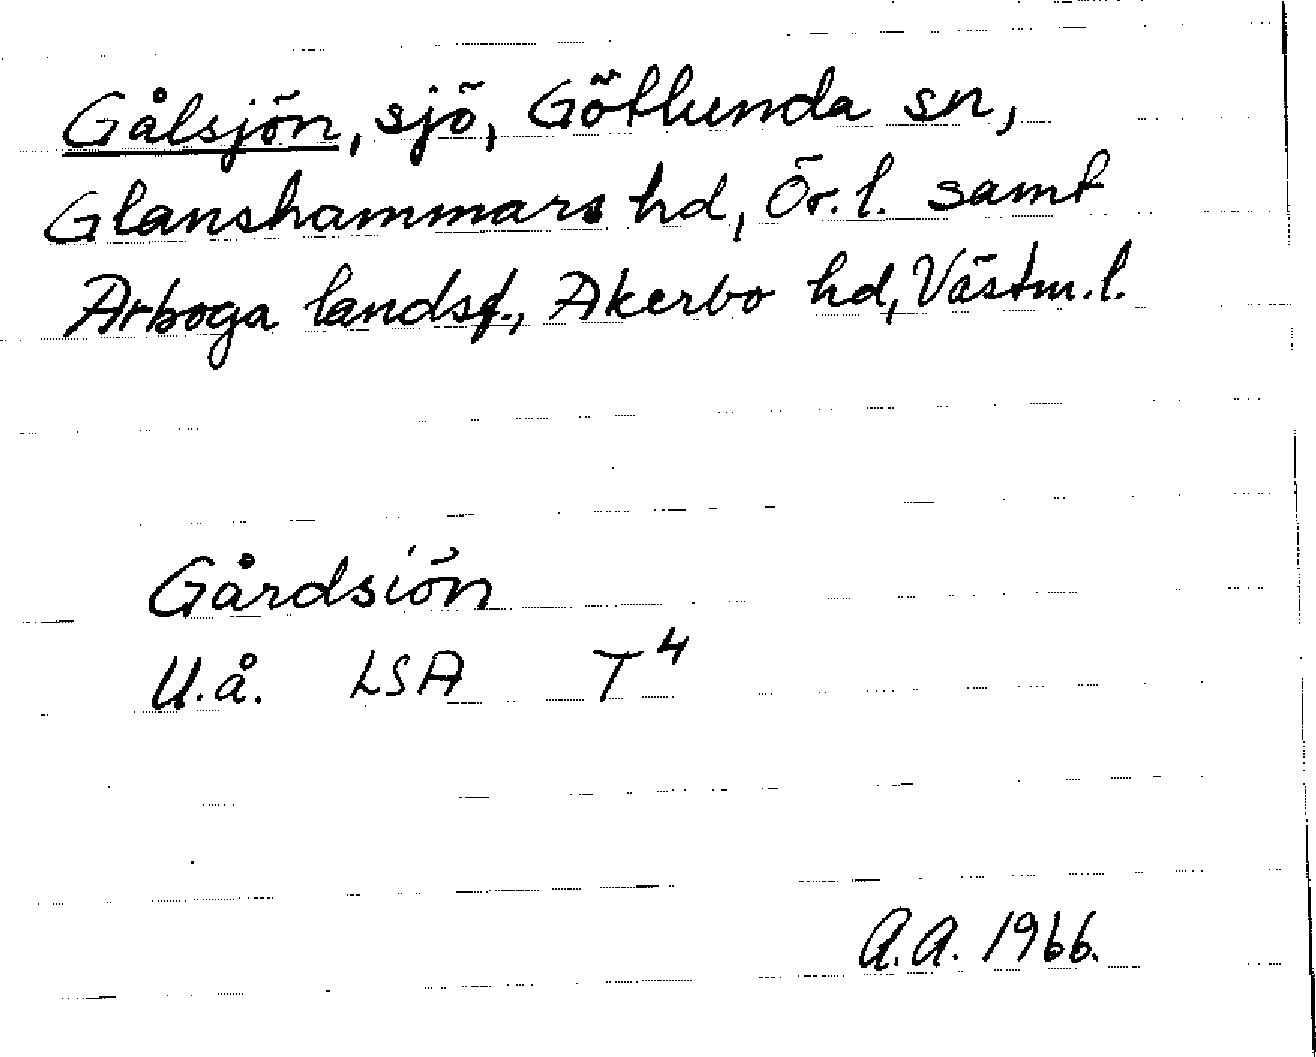 Gålsjön, sjö, Götlunda sn,
Glanshammars hd, Ör.l. samt
Arboga landsf., Akerbo hd, Västm.l.
Gårdsiön
U.å. LSA T⁴
A.A. 1966.